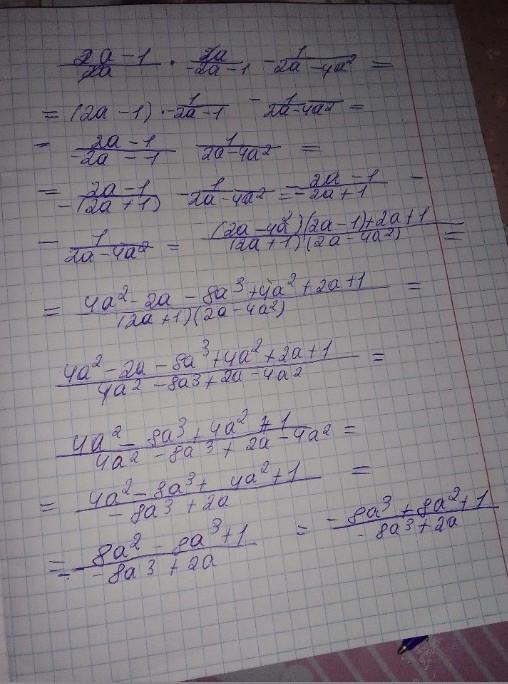 (2a-1)/(2a) · (2a)/(-2a-1) - 1/(2a-4a²) =
= (2a-1) · 1/(-2a-1) - 1/(2a-4a²) =
= (2a-1)/(-2a-1) 1/(2a-4a²) =
= (2a-1)/(-(2a+1)) - 1/(2a-4a²) = - (2a-1)/(2a+1) -
- 1/(2a-4a²) = ((2a-4a²)(2a-1)+2a+1)/((2a+1)(2a-4a²)) =
= (4a²-2a-8a³+4a²+2a+1)/((2a+1)(2a-4a²)) =
(4a²-2a-8a³+4a²+2a+1)/(4a²-8a³+2a-4a²) =
(4a²-8a³+4a²+1)/(4a²-8a³+2a-4a²) =
= (4a²-8a³+4a²+1)/(-8a³+2a) =
= (8a²-8a³+1)/(-8a³+2a) = (-8a³+8a²+1)/(-8a³+2a)